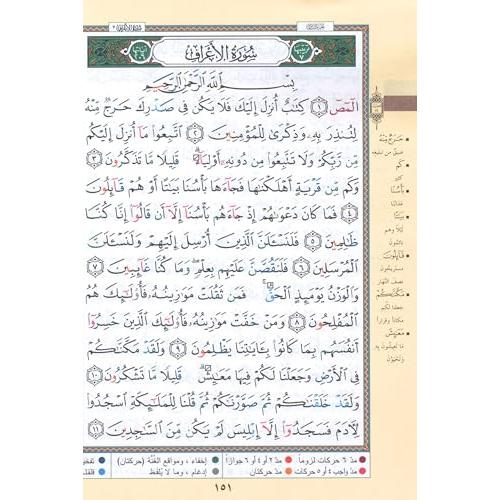 سُورَةُ الأَعْرَافِ
بِسْمِ اللَّهِ الرَّحْمَٰنِ الرَّحِيمِ
الٓمٓصٓ ١ كِتَٰبٌ أُنزِلَ إِلَيْكَ فَلَا يَكُن فِى صَدْرِكَ حَرَجٌ مِّنْهُ
لِتُنذِرَ بِهِۦ وَذِكْرَىٰ لِلْمُؤْمِنِينَ ٢ ٱتَّبِعُوا۟ مَآ أُنزِلَ إِلَيْكُم
مِّن رَّبِّكُمْ وَلَا تَتَّبِعُوا۟ مِن دُونِهِۦٓ أَوْلِيَآءَ قَلِيلًا مَّا تَذَكَّرُونَ ٣
وَكَم مِّن قَرْيَةٍ أَهْلَكْنَٰهَا فَجَآءَهَا بَأْسُنَا بَيَٰتًا أَوْ هُمْ قَآئِلُونَ
٤ فَمَا كَانَ دَعْوَىٰهُمْ إِذْ جَآءَهُم بَأْسُنَآ إِلَّآ أَن قَالُوٓا۟ إِنَّا كُنَّا
ظَٰلِمِينَ ٥ فَلَنَسْـَٔلَنَّ ٱلَّذِينَ أُرْسِلَ إِلَيْهِمْ وَلَنَسْـَٔلَنَّ
ٱلْمُرْسَلِينَ ٦ فَلَنَقُصَّنَّ عَلَيْهِم بِعِلْمٍ وَمَا كُنَّا غَآئِبِينَ ٧
وَٱلْوَزْنُ يَوْمَئِذٍ ٱلْحَقُّ فَمَن ثَقُلَتْ مَوَٰزِينُهُۥ فَأُو۟لَٰٓئِكَ هُمُ
ٱلْمُفْلِحُونَ ٨ وَمَنْ خَفَّتْ مَوَٰزِينُهُۥ فَأُو۟لَٰٓئِكَ ٱلَّذِينَ خَسِرُوٓا۟
أَنفُسَهُم بِمَا كَانُوا۟ بِـَٔايَٰتِنَا يَظْلِمُونَ ٩ وَلَقَدْ مَكَّنَّٰكُمْ
فِى ٱلْأَرْضِ وَجَعَلْنَا لَكُمْ فِيهَا مَعَٰيِشَ قَلِيلًا مَّا تَشْكُرُونَ ١٠
وَلَقَدْ خَلَقْنَٰكُمْ ثُمَّ صَوَّرْنَٰكُمْ ثُمَّ قُلْنَا لِلْمَلَٰٓئِكَةِ ٱسْجُدُوا۟
لِـَٔادَمَ فَسَجَدُوٓا۟ إِلَّآ إِبْلِيسَ لَمْ يَكُن مِّنَ ٱلسَّٰجِدِينَ ١١
حَرَجٌ مِّنْهُ
ضيق من تبليغه
كَم
كثير
بَأْسُنَا
عذابنا
بَيَٰتًا
ليلا وهم
نائمون
قَآئِلُونَ
مستريحون
نصف النهار
مَكَّنَّٰكُمْ
جعلنا لكم
مكانا وقرارا
مَعَٰيِشَ
ما تعيشون به
وتحيون
مدّ ٦ حركات لزوماً مدّ ٢ أو ٤ أو ٦ جوازاً إخفاء، ومواقع الغُنَّة (حركتان)
مدّ واجب ٤ أو ٥ حركات مدّ حركتان إدغام، وما لا يُلفَظ
١٥١